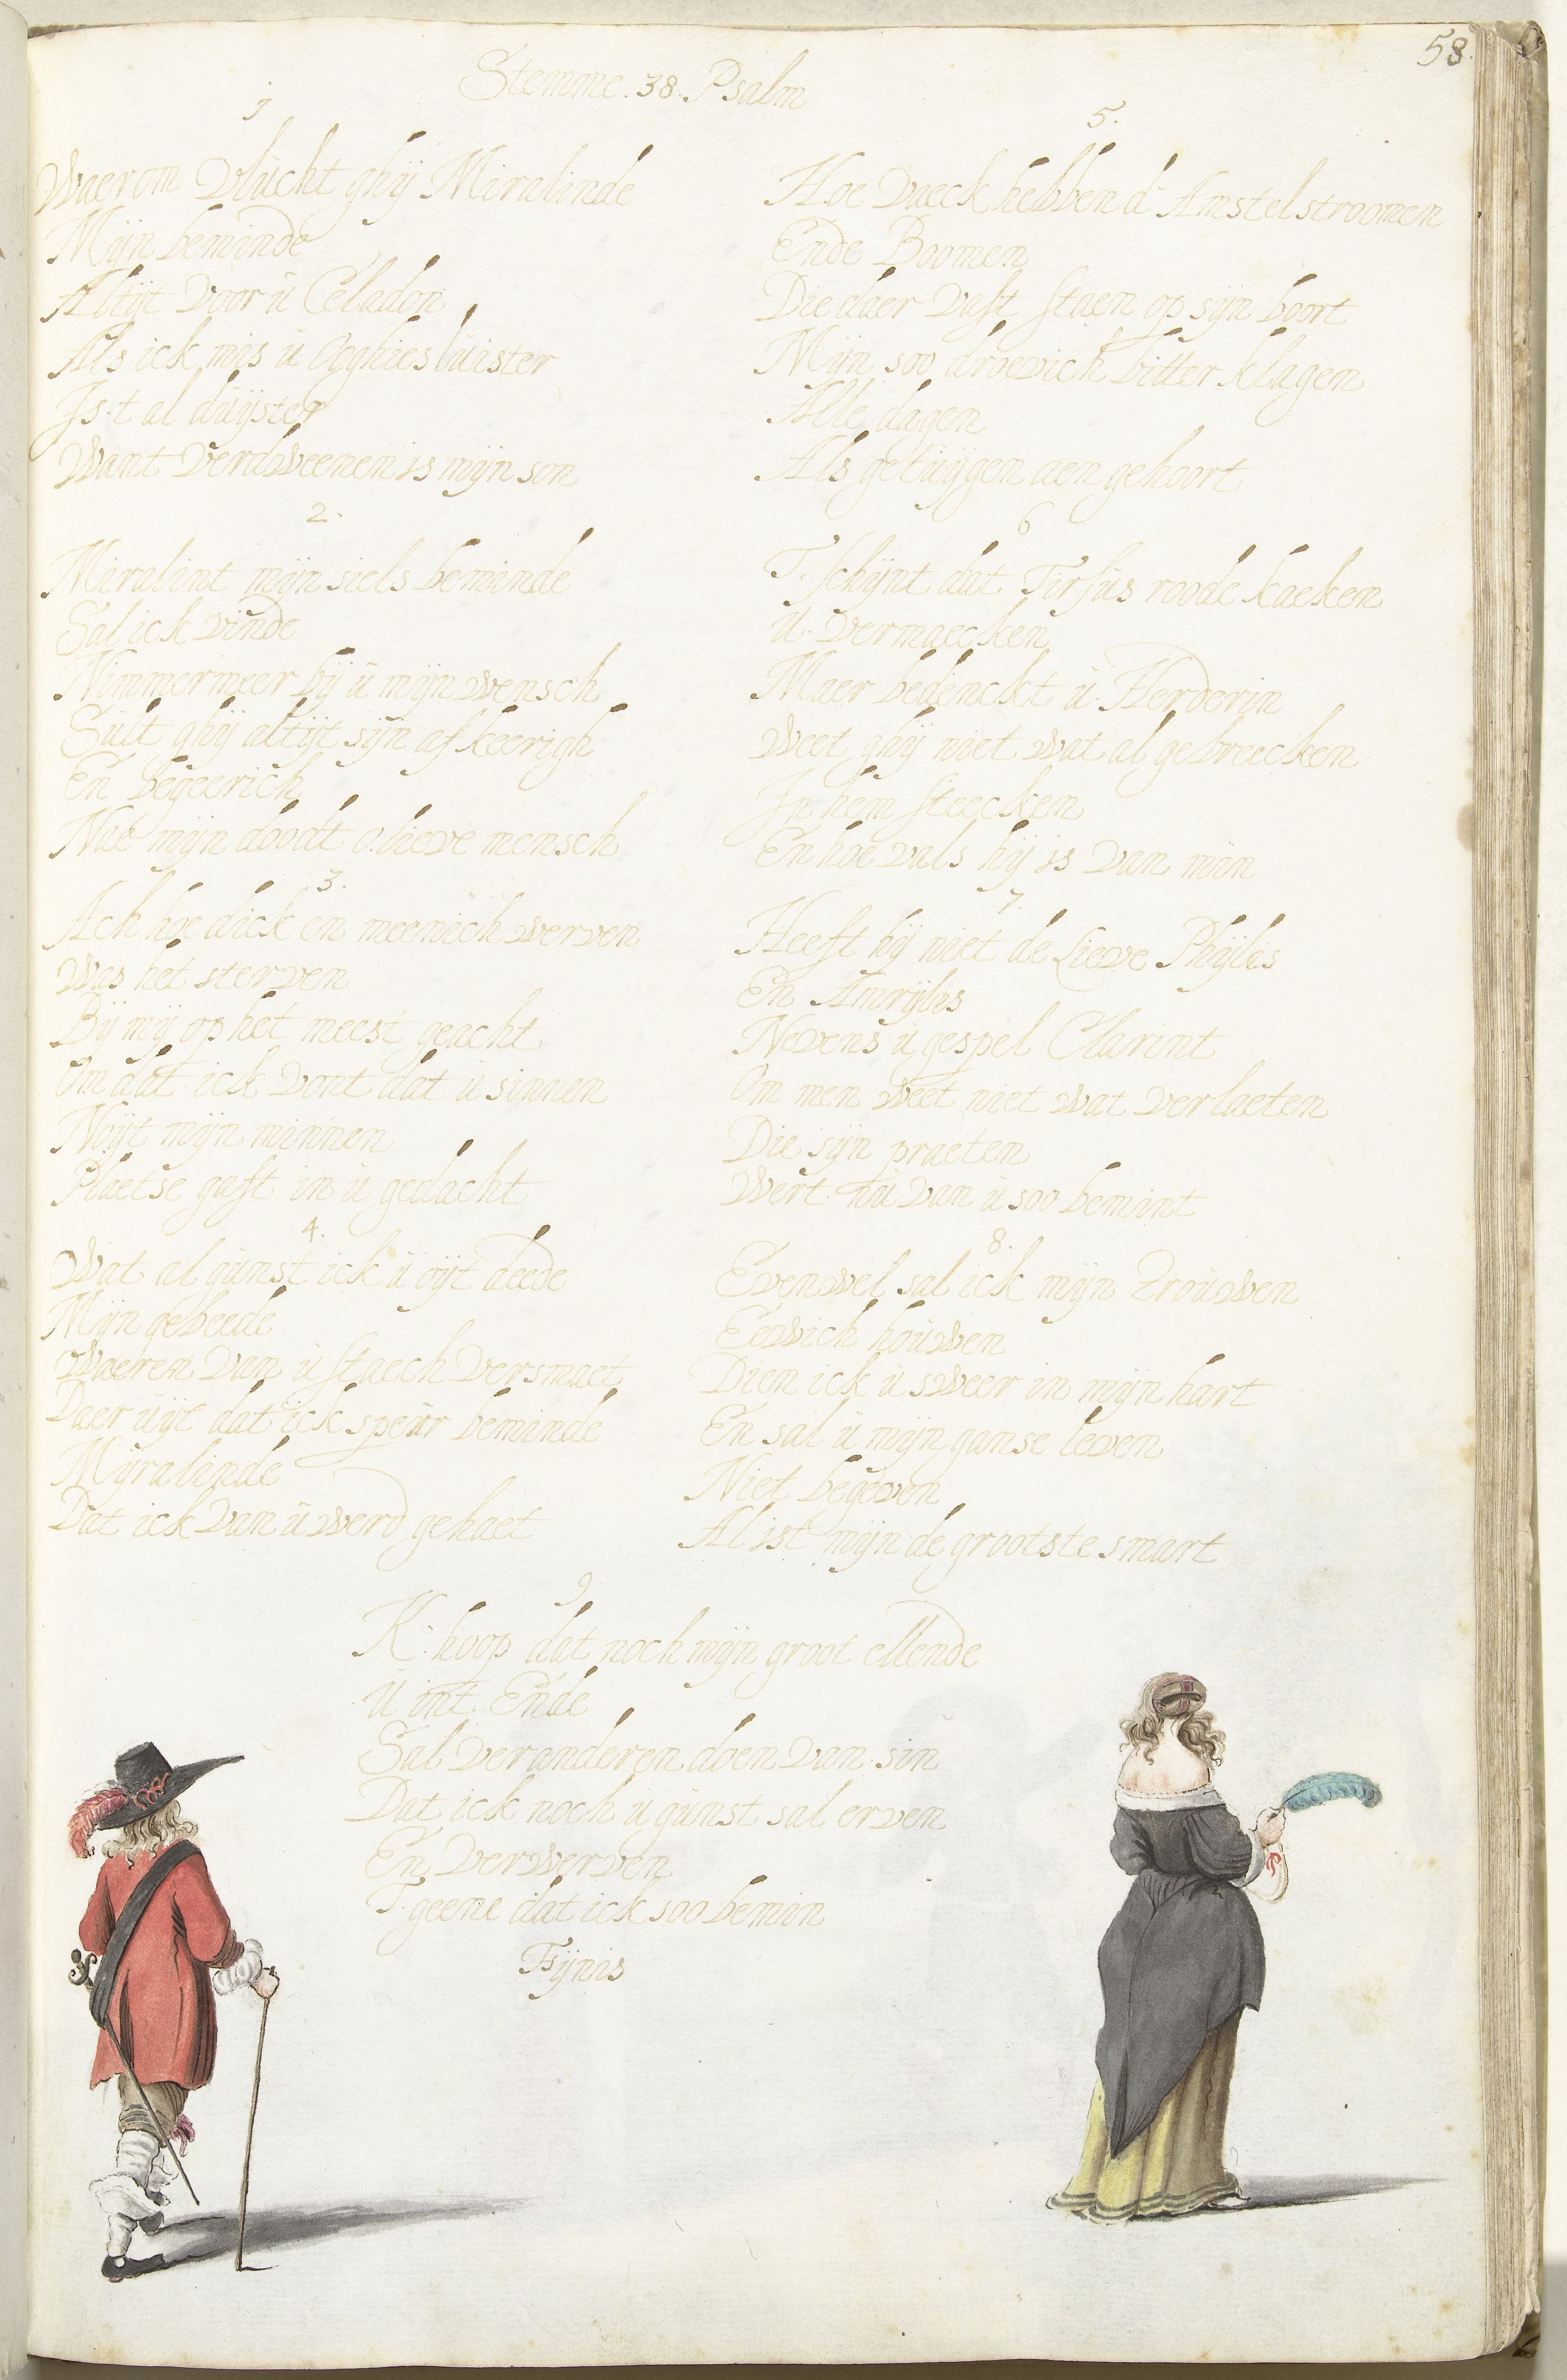 58.
Stemme. 38. Psalm
1
Waerom Vlucht ghij Miralinde
Mijn beminde
Altijt Voor ù Celadon
Als ick mis ù Ooghies lùister
Is t al dùijster
Want Verdweenen is mijn son
2.
Miralint mijn siels beminde
Sal ick vinde
Nimmermeer bij ù mijn wensch
Sùlt ghij altijt sijn af keerigh
En begeerich
Nae mijn doodt o. lieve mensch
3.
Ach hoe dick en meenich werven
Was het sterven
Bij mij op het meest geacht
Om dat ick Vont dat ù sinnen
Noijt mijn minnen
Plaetse gaft in ù gedacht
4.
Wat al gùnst ick ù oijt deede
Mijn gebeede
Waeren Van ù staech Versmaet
Daer ùijt dat ick speùr beminde
Mijralinde
Dat ick Van ù werd gehaet
5.
Hoe Vaeck hebben d' Amstelstroomen
Ende Boomen
Die daer Vast staen op sijn boort
Mijn soo droevich bitter klagen
Alle dagen
Als getùijgen aen gehoort
6
T. schijnt dat Tirsùs roode kaeken
ù. Vermaecken
Maer bedenckt ù. Herderin
Weet ghij niet wat al gebreecken
In hem steecken
En hoe vals hij is Van min
7.
Heeft hij niet de Lieve Phijlis
En Amrijlis
Nevens ù gespel Clarint
Om men weet niet wat Verlaeten
Die sijn praeten
Wert nù Van ù soo bemint
8.
Evenwel sal ick mijn Trouwen
Eewich hoùwen
Dien ick ù sweer in mijn hart
En sal ù mijn ganse leven
Niet begeven
Al ist mijn de grootste smart
9
K: hoop dat noch mijn groot ellende
ù int Ende
Sal Veranderen doen Van sin
Dat ick noch ù gùnst sal erven
En Verwerven
T. geene dat ick soo bemin
Fijnis